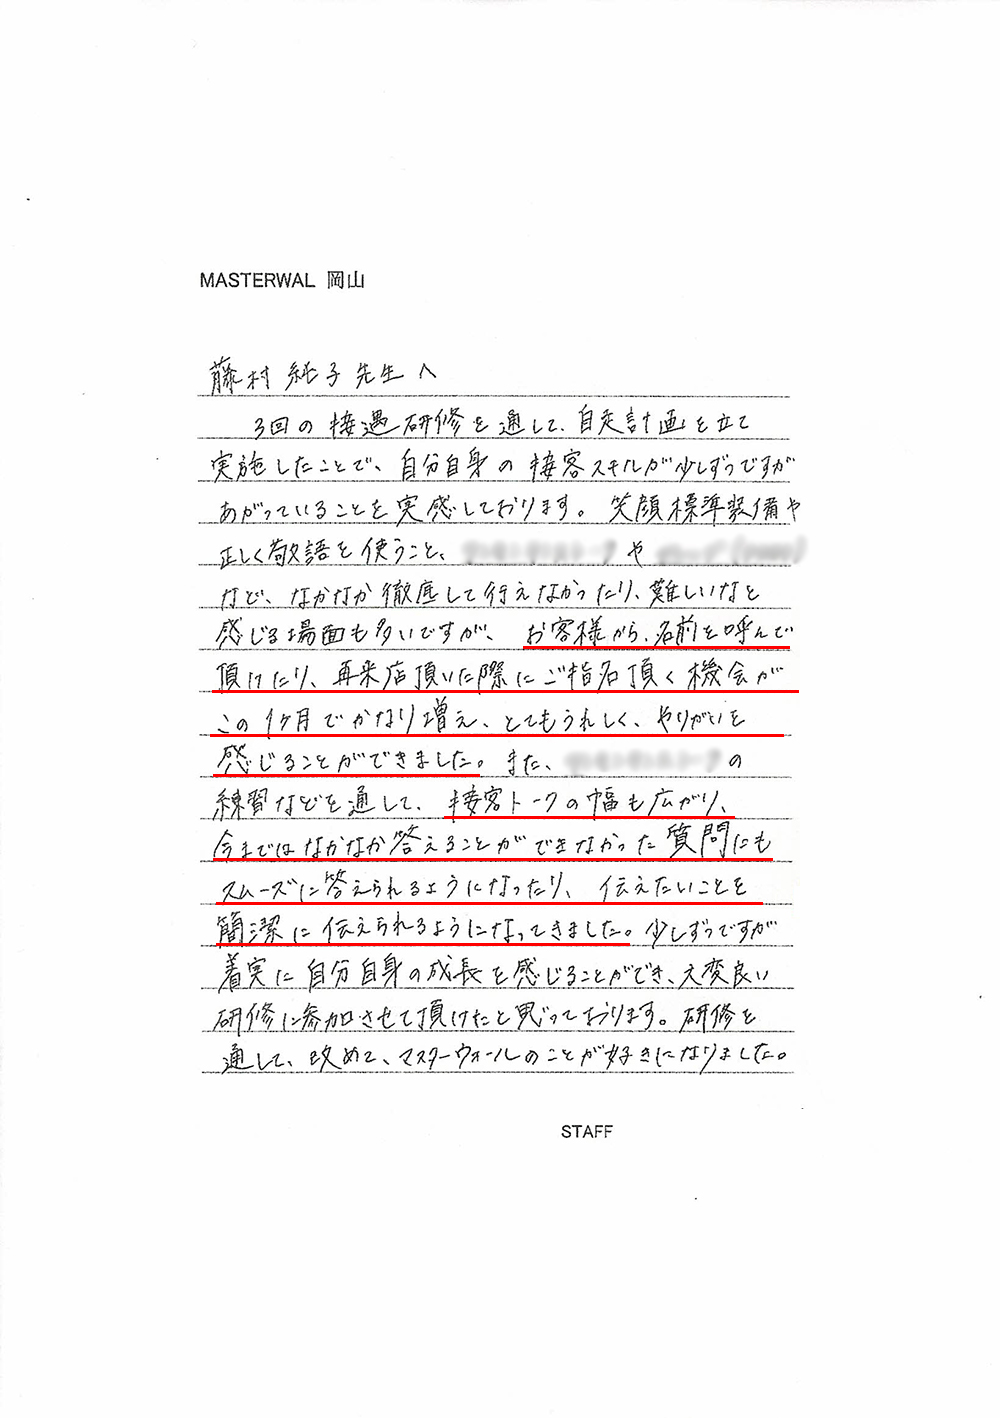 MASTERWAL 岡山
藤村 純子 先生 へ
3回の接遇研修を通して、自走計画を立て
実施したことで、自分自身の接客スキルが少しずつですが
あがっていることを実感しております。笑顔標準装備や
正しく敬語を使うこと、 や
など、なかなか徹底して行えなかったり、難しいなと
感じる場面も多いですが、お客様から、名前を呼んで
頂けたり、再来店頂いた際にご指名頂く機会が
この1ヶ月でかなり増え、とてもうれしく、やりがいを
感じることができました。また、 の
練習などを通して、接客トークの幅も広がり、
今まではなかなか答えることができなかった質問にも
スムーズに答えられるようになったり、伝えたいことを
簡潔に伝えられるようになってきました。少しずつですが
着実に自分自身の成長を感じることができ、大変良い
研修に参加させて頂けたと思っております。研修を
通して、改めて、マスターウォールのことが好きになりました。
STAFF